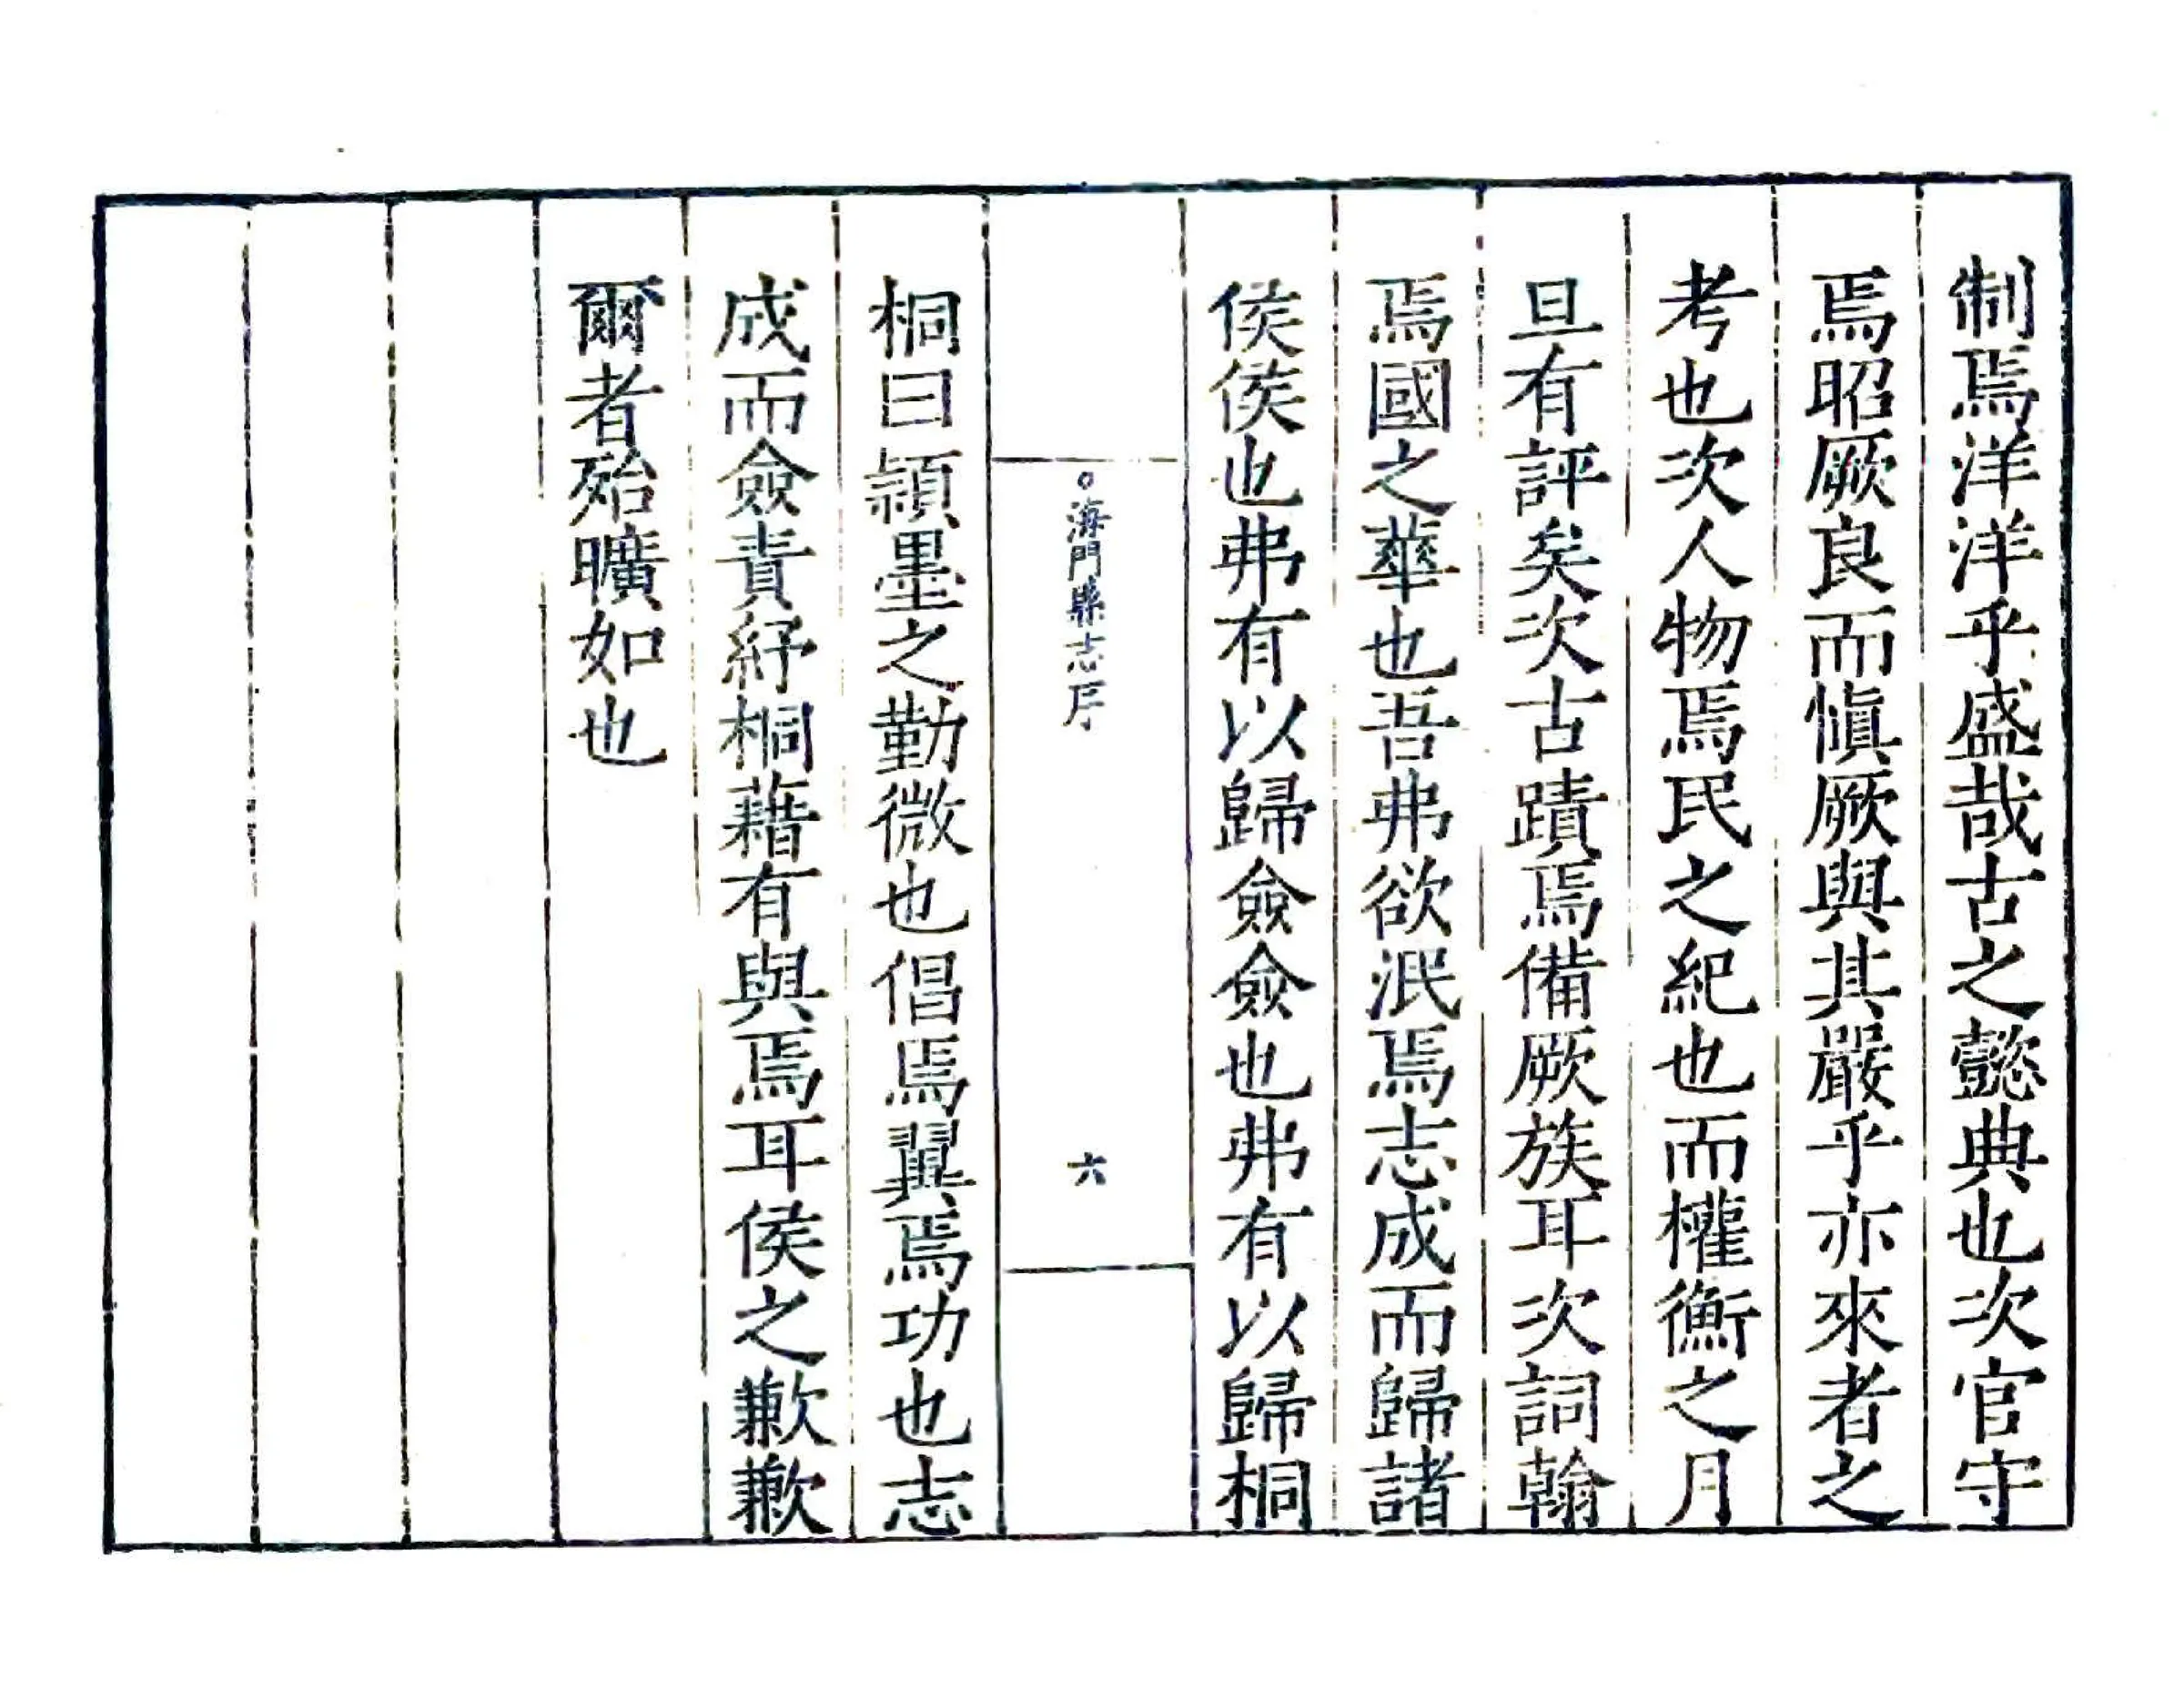 制焉洋洋乎盛哉古之懿典也次官守
焉昭厥良而愼厥與其嚴乎亦來者之
考也次人物焉民之紀也而權衡之月
旦有評矣次古蹟焉備厥族耳次詞翰
焉國之華也吾弗欲泯焉志成而歸諸
侯侯也弗有以歸僉僉也弗有以歸桐
海門縣志序
六
桐曰穎墨之勤微也倡焉翼焉功也志
成而僉責紓桐藉有與焉耳侯之歉歉
爾者殆曠如也